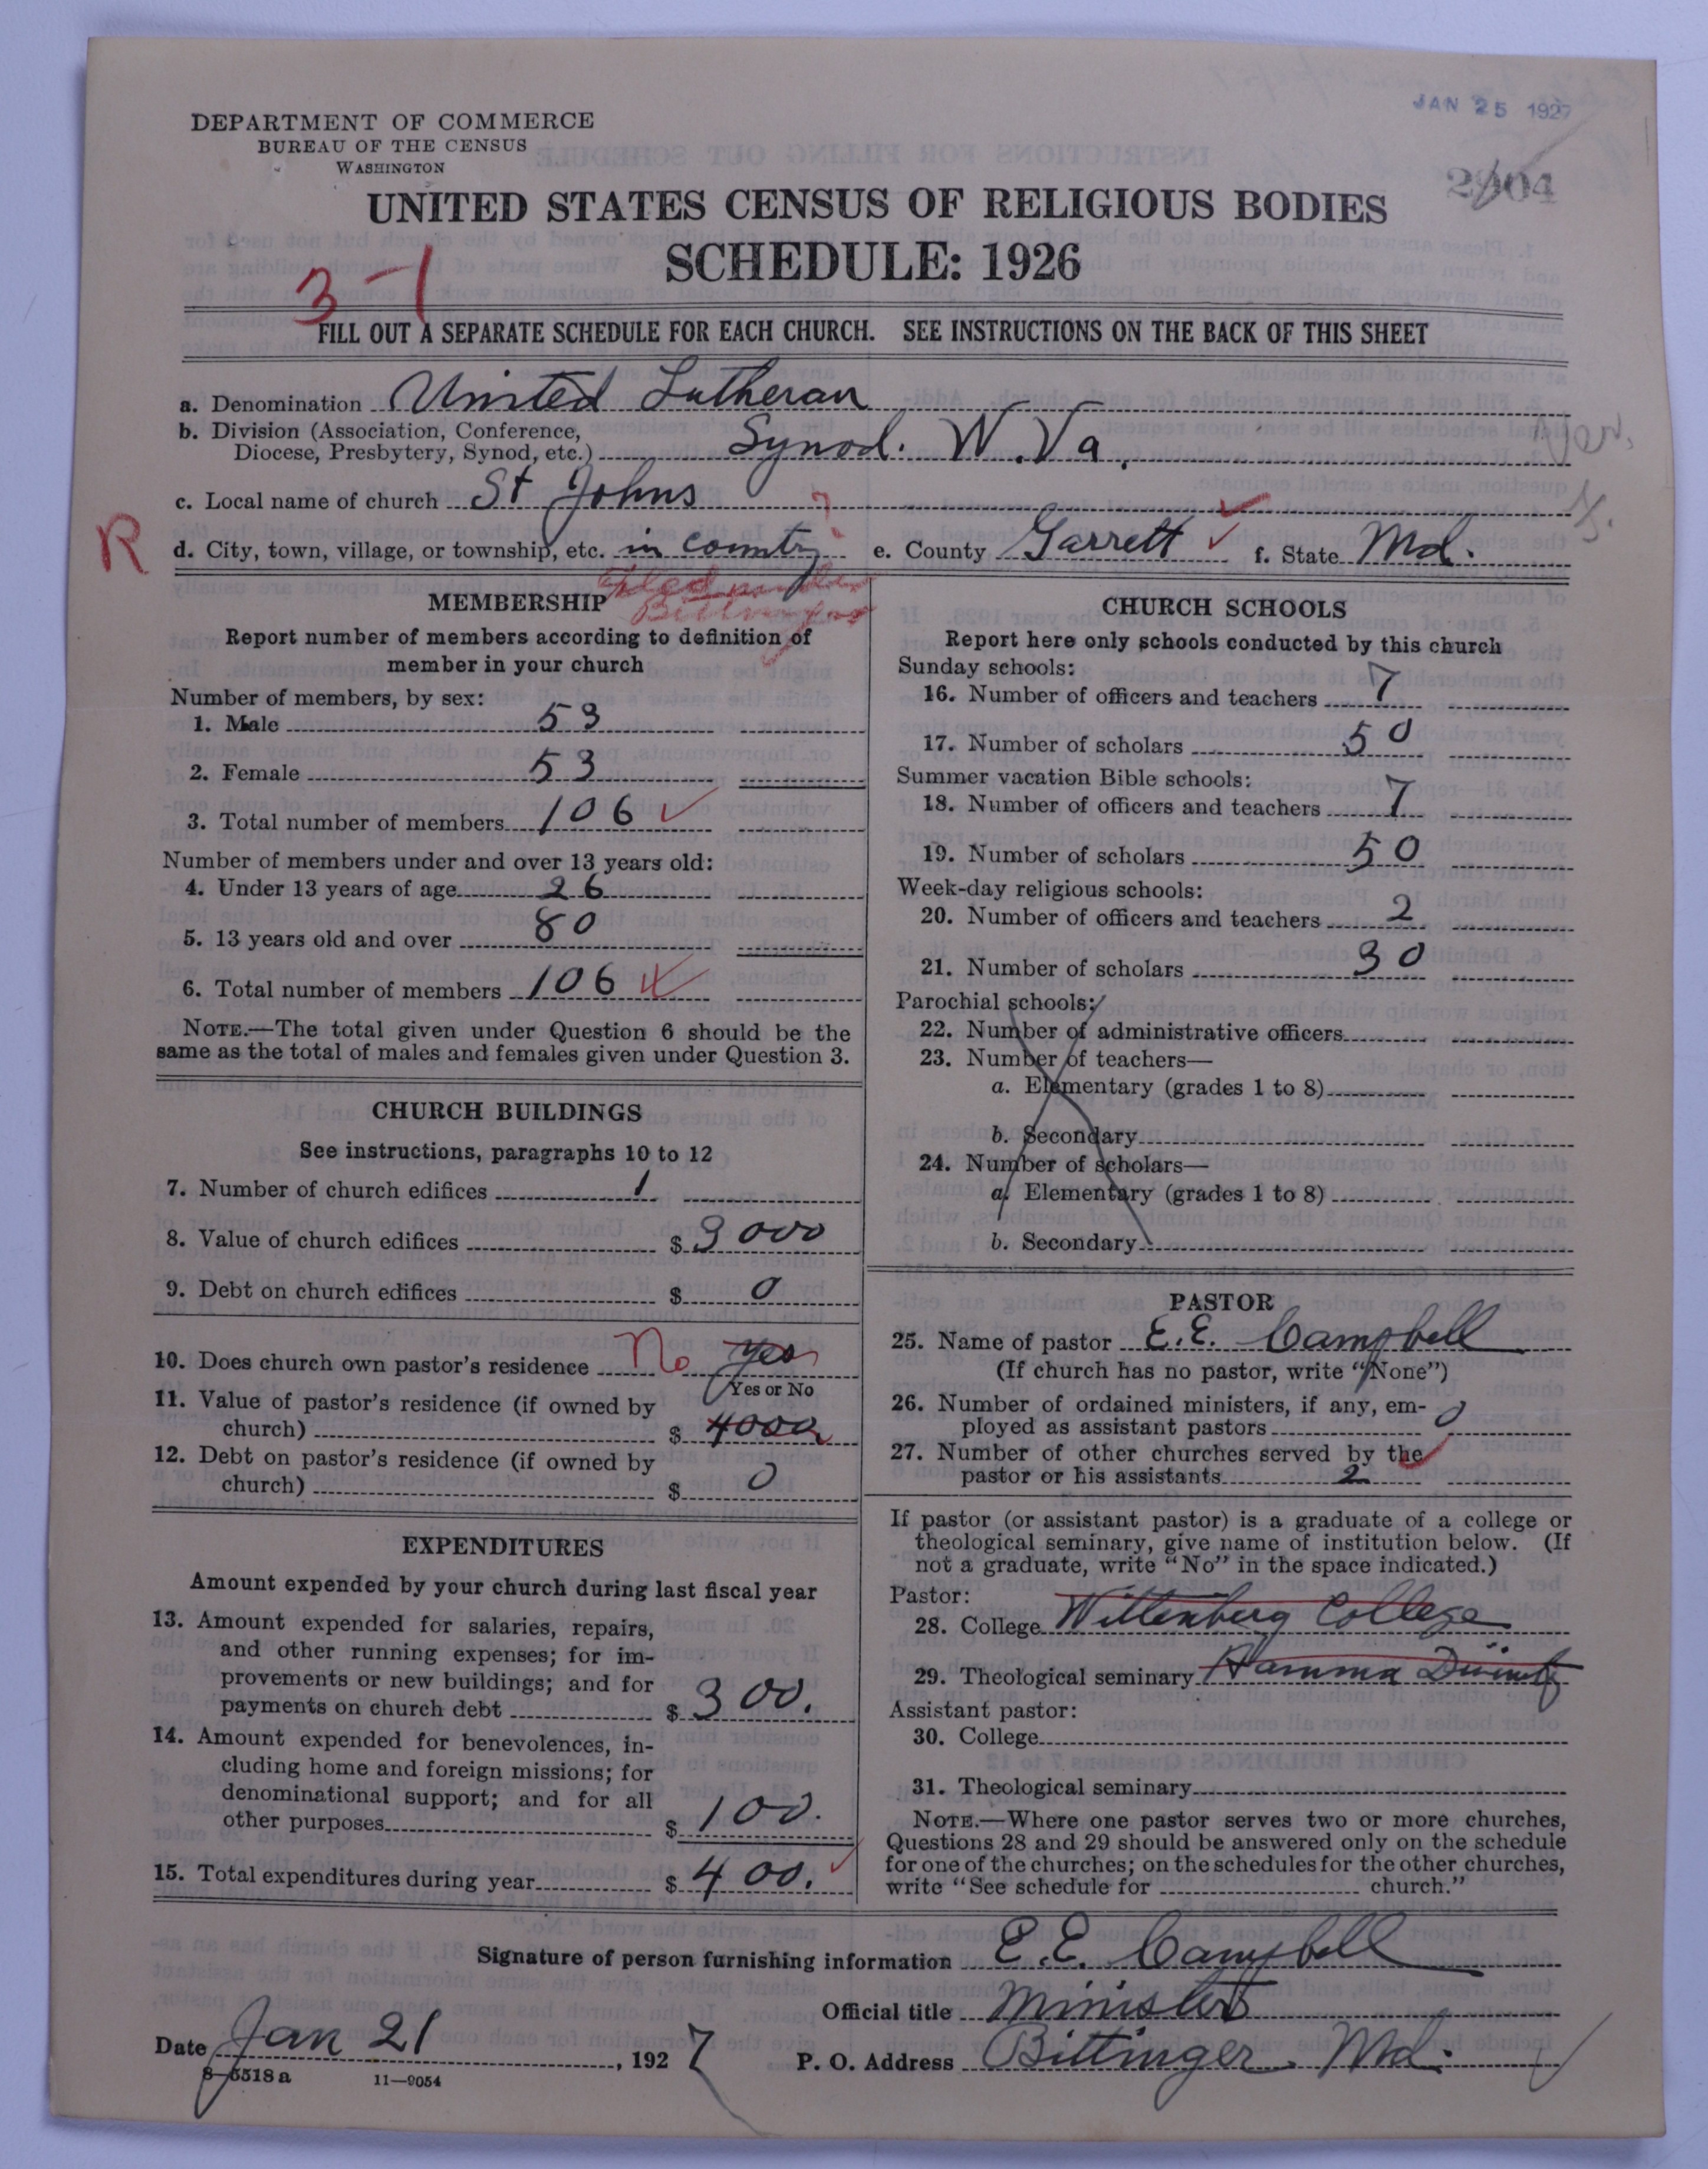 JAN 25 1927
DEPARTMENT OF COMMERCE
BUREAU OF THE CENSUS
WASHINGTON
2904
UNITED STATES CENSUS OF RELIGIOUS BODIES
SCHEDULE: 1926
3-1
FILL OUT A SEPARATE SCHEDULE FOR EACH CHURCH. SEE INSTRUCTIONS ON THE BACK OF THIS SHEET
a. Denomination United Lutheran
b. Division (Association, Conference,
Diocese, Presbytery, Synod, etc.) Synod. W.Va.
c. Local name of church St Johns ?
R
d. City, town, village, or township, etc. in country e. County Garrett f. State Md.
MEMBERSHIP
Filed under
Bittinger
Report number of members according to definition of
member in your church
Number of members, by sex:
1. Male 53
2. Female 53
3. Total number of members 106
Number of members under and over 13 years old:
4. Under 13 years of age 26
5. 13 years old and over 80
6. Total number of members 106
NOTE.—The total given under Question 6 should be the
same as the total of males and females given under Question 3.
CHURCH BUILDINGS
See instructions, paragraphs 10 to 12
7. Number of church edifices 1
8. Value of church edifices $ 3000
9. Debt on church edifices $ 0
10. Does church own pastor's residence No yes
Yes or No
11. Value of pastor's residence (if owned by
church) $ 4000
12. Debt on pastor's residence (if owned by
church) $ 0
EXPENDITURES
Amount expended by your church during last fiscal year
13. Amount expended for salaries, repairs,
and other running expenses; for im-
provements or new buildings; and for
payments on church debt $ 300.
14. Amount expended for benevolences, in-
cluding home and foreign missions; for
denominational support; and for all
other purposes $ 100.
15. Total expenditures during year $ 400.
CHURCH SCHOOLS
Report here only schools conducted by this church
Sunday schools:
16. Number of officers and teachers 7
17. Number of scholars 50
Summer vacation Bible schools:
18. Number of officers and teachers 7
19. Number of scholars 50
Week-day religious schools:
20. Number of officers and teachers 2
21. Number of scholars 30
Parochial schools:
22. Number of administrative officers
23. Number of teachers—
a. Elementary (grades 1 to 8)
b. Secondary
24. Number of scholars—
a. Elementary (grades 1 to 8)
b. Secondary
PASTOR
25. Name of pastor E.E. Campbell
(If church has no pastor, write "None")
26. Number of ordained ministers, if any, em-
ployed as assistant pastors 0
27. Number of other churches served by the
pastor or his assistants 2
If pastor (or assistant pastor) is a graduate of a college or
theological seminary, give name of institution below. (If
not a graduate, write "No" in the space indicated.)
Pastor:
28. College Wittenberg College
29. Theological seminary Hamma Divinity
Assistant pastor:
30. College
31. Theological seminary
NOTE.—Where one pastor serves two or more churches,
Questions 28 and 29 should be answered only on the schedule
for one of the churches; on the schedules for the other churches,
write "See schedule for church."
Signature of person furnishing information E.E. Campbell
Official title Minister
Date Jan 21, 1927
P. O. Address Bittinger Md.
8-5518a 11—9054